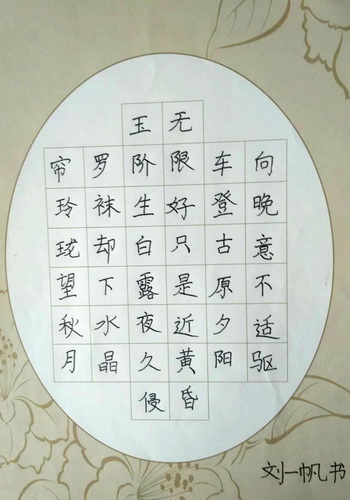 向晚意不适驱
车登古原夕阳
无限好只是近黄昏
玉阶生白露夜久侵
罗袜却下水晶
帘玲珑望秋月
刘一帆书